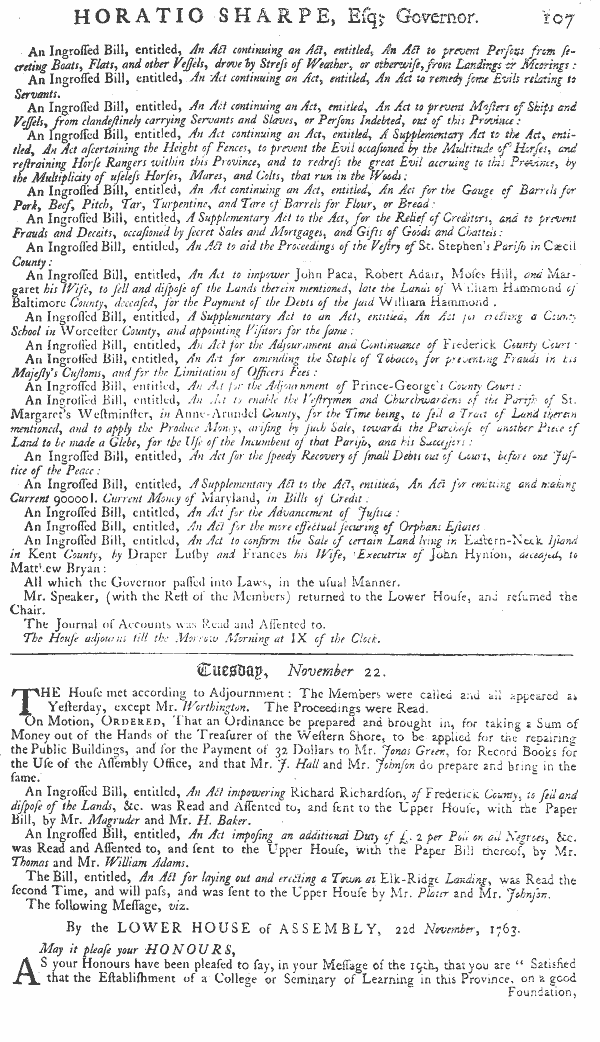 HORATIO SHARPE, Eſq; Governor. 107
An Ingroſſed Bill, entitled, An Act continuing an Act, entitled, An Act to prevent Perſons from ſe-
creting Boats, Flats, and other Veſſels, drove by Streſs of Weather, or otherwiſe, from Landings or Moorings:
An Ingroſſed Bill, entitled, An Act continuing an Act, entitled, An Act to remedy ſome Evils relating to
Servants.
An Ingroſſed Bill, entitled, An Act continuing an Act, entitled, An Act to prevent Maſters of Ships and
Veſſels, from clandeſtinely carrying Servants and Slaves, or Perſons Indebted, out of this Province:
An Ingroſſed Bill, entitled, An Act continuing an Act, entitled, A Supplementary Act to the Act, enti-
tled, An Act aſcertaining the Height of Fences, to prevent the Evil occaſioned by the Multitude of Horſes, and
reſtraining Horſe Rangers within this Province, and to redreſs the great Evil accruing to this Province, by
the Multiplicity of uſeleſs Horſes, Mares, and Colts, that run in the Woods:
An Ingroſſed Bill, entitled, An Act continuing an Act, entitled, An Act for the Gauge of Barrels for
Pork, Beef, Pitch, Tar, Turpentine, and Tare of Barrels for Flour, or Bread:
An Ingroſſed Bill, entitled, A Supplementary Act to the Act, for the Relief of Creditors, and to prevent
Frauds and Deceits, occaſioned by ſecret Sales and Mortgages, and Gifts of Goods and Chattels:
An Ingroſſed Bill, entitled, An Act to aid the Proceedings of the Veſtry of St. Stephen's Pariſh in Cæcil
County:
An Ingroſſed Bill, entitled, An Act to impower John Paca, Robert Adair, Moſes Hill, and Mar-
garet his Wife, to ſell and diſpoſe of the Lands therein mentioned, late the Lands of William Hammond of
Baltimore County, deceaſed, for the Payment of the Debts of the ſaid William Hammond.
An Ingroſſed Bill, entitled, A Supplementary Act to an Act, entitled, An Act for erecting a County
School in Worceſter County, and appointing Viſitors for the ſame:
An Ingroſſed Bill, entitled, An Act for the Adjournment and Continuance of Frederick County Court:
An Ingroſſed Bill, entitled, An Act for amending the Staple of Tobacco, for preventing Frauds in his
Majeſty's Cuſtoms, and for the Limitation of Officers Fees:
An Ingroſſed Bill, entitled, An Act for the Adjournment of Prince-George's County Court:
An Ingroſſed Bill, entitled, An Act to enable the Veſtrymen and Churchwardens of the Pariſh of St.
Margaret's Weſtminſter, in Anne-Arundel County, for the Time being, to ſell a Tract of Land therein
mentioned, and to apply the Produce Money, ariſing by ſuch Sale, towards the Purchaſe of another Piece of
Land to be made a Glebe, for the Uſe of the Incumbent of that Pariſh, and his Succeſſors:
An Ingroſſed Bill, entitled, An Act for the ſpeedy Recovery of ſmall Debts out of Court, before one Juſ-
tice of the Peace:
An Ingroſſed Bill, entitled, A Supplementary Act to the Act, entitled, An Act for emitting and making
Current 90000 l. Current Money of Maryland, in Bills of Credit:
An Ingroſſed Bill, entitled, An Act for the Advancement of Juſtice:
An Ingroſſed Bill, entitled, An Act for the more effectual ſecuring of Orphans Eſtates
An Ingroſſed Bill, entitled, An Act to confirm the Sale of certain Land lying in Eaſtern-Neck Iſland
in Kent County, by Draper Luſby and Frances his Wife, Executrix of John Hynſon, deceaſed, to
Matthew Bryan:
All which the Governor paſſed into Laws, in the uſual Manner.
Mr. Speaker, (with the Reſt of the Members) returned to the Lower Houſe, and reſumed the
Chair.
The Journal of Accounts was Read and Aſſented to.
The Houſe adjourns till the Morrow Morning at IX of the Clock.
Tueſday, November 22.
THE Houſe met according to Adjournment: The Members were called and all appeared as
Yeſterday, except Mr. Worthington. The Proceedings were Read.
On Motion, ORDERED, That an Ordinance be prepared and brought in, for taking a Sum of
Money out of the Hands of the Treaſurer of the Weſtern Shore, to be applied for the repairing
the Public Buildings, and for the Payment of 32 Dollars to Mr. Jonas Green, for Record Books for
the Uſe of the Aſſembly Office, and that Mr. J. Hall and Mr. Johnſon do prepare and bring in the
ſame.
An Ingroſſed Bill, entitled, An Act impowering Richard Richardſon, of Frederick County, to ſell and
diſpoſe of the Lands, &c. was Read and Aſſented to, and ſent to the Upper Houſe, with the Paper
Bill, by Mr. Magruder and Mr. H. Baker.
An Ingroſſed Bill, entitled, An Act impoſing an additional Duty of £. 2 per Poll on all Negroes, &c.
was Read and Aſſented to, and ſent to the Upper Houſe, with the Paper Bill thereof, by Mr.
Thomas and Mr. William Adams.
The Bill, entitled, An Act for laying out and erecting a Town at Elk-Ridge Landing, was Read the
ſecond Time, and will paſs, and was ſent to the Upper Houſe by Mr. Plater and Mr. Johnſon.
The following Meſſage, viz.
By the LOWER HOUSE of ASSEMBLY, 22d November, 1763.
May it pleaſe your HONOURS,
AS your Honours have been pleaſed to ſay, in your Meſſage of the 19th, that you are "Satisfied
that the Eſtabliſhment of a College or Seminary of Learning in this Province, on a good
Foundation,